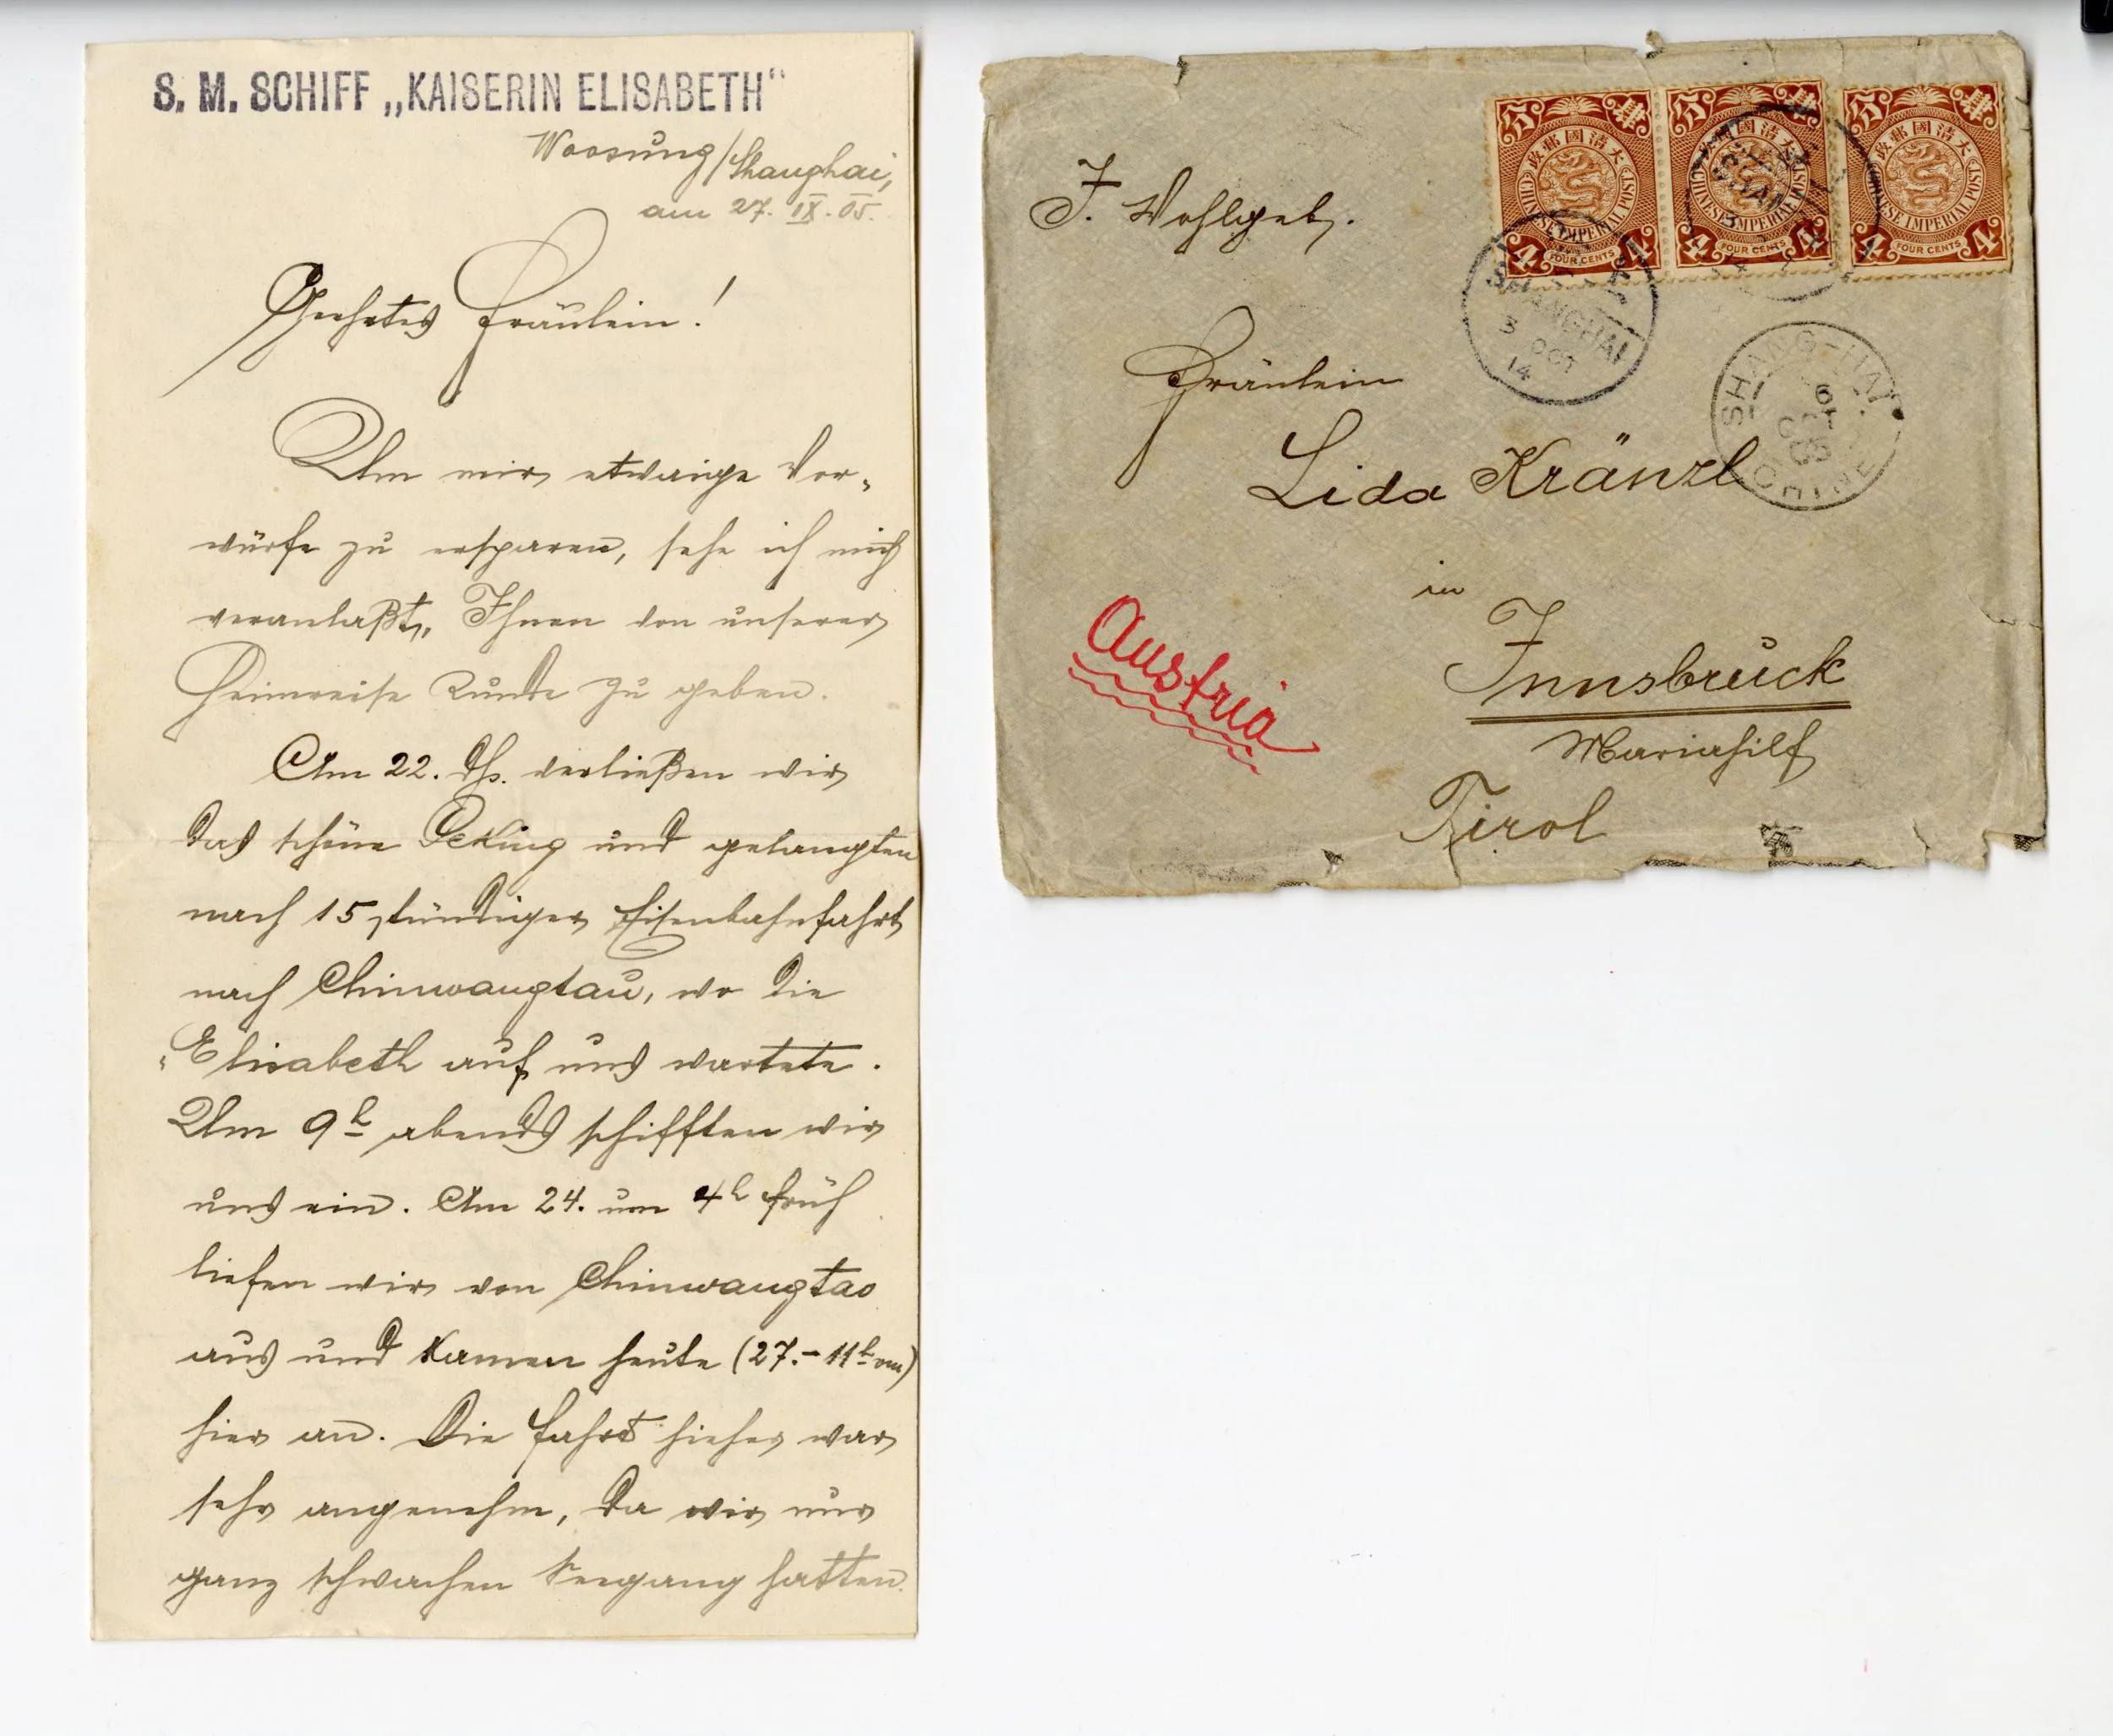 S. M. SCHIFF „KAISERIN ELISABETH“
Woosung/Shanghai,
am 27. IX. 05.
Geehrtes Fräulein!
Um mir etwaige Vor-
würfe zu ersparen, sehe ich mich
veranlaßt, Ihnen von unserer
Heimreise Kunde zu geben.
Am 22. ds. verließen wir
das schöne Peking und gelangten
nach 15 stündiger Eisenbahnfahrt
nach Chinwangtau, wo die
„Elisabeth auf uns wartete.
Um 9h abends schifften wir
uns ein. Am 24. um 4h früh
liefen wir von Chinwangtao
aus und kamen heute (27.-11h vm)
hier an. Die Fahrt hieher war
sehr angenehm, da wir nur
ganz schwachen Seegang hatten.
大清國郵政
CHINESE IMPERIAL POST
4 FOUR CENTS 4
大清國郵政
CHINESE IMPERIAL POST
4 FOUR CENTS 4
大清國郵政
CHINESE IMPERIAL POST
4 FOUR CENTS 4
SHANGHAI
3 OCT
14
SHANG-HAI
6
OCT
05
CHINE
J. Wohlgeb.
Fräulein
Lida Kränzl
in
Innsbruck
Mariahilf
Tirol
Austria